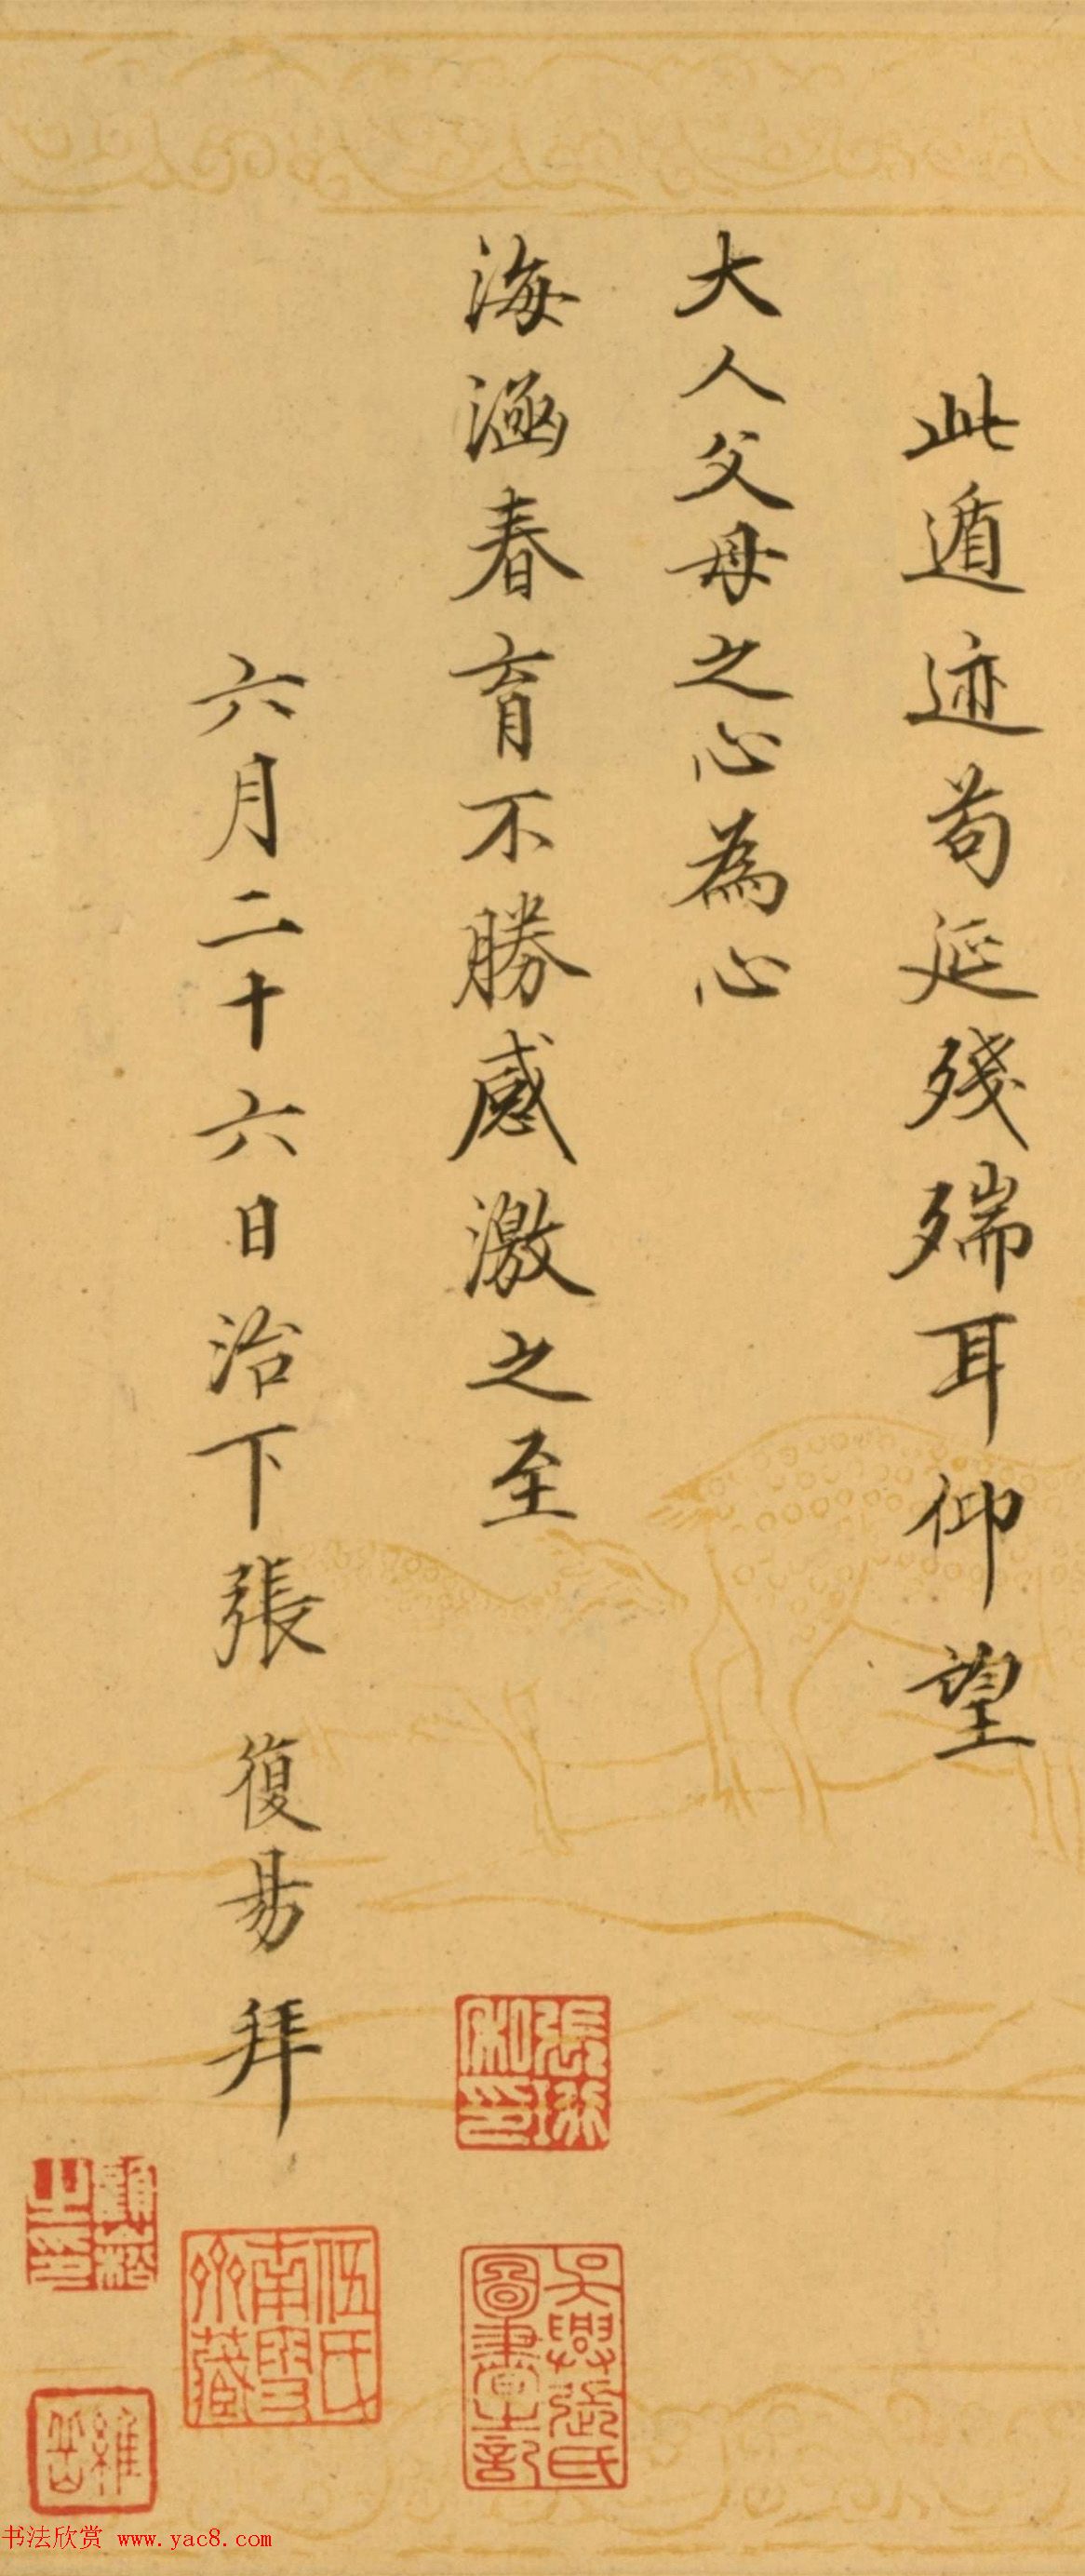 此遁迹苟延残喘耳仰望
大人父母之心為心
海涵春育不勝感激之至
六月二十六日治下張復易拜
張珩私印
吳興張氏圖書之記
伍氏南雪齋藏
顧崧之印
維岳
书法欣赏 www.yac8.com